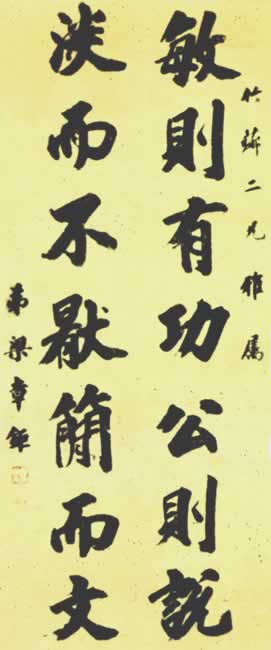 竹骍二兄雅属
敏則有功公則說
淡而不厭簡而文
弟梁章鉅